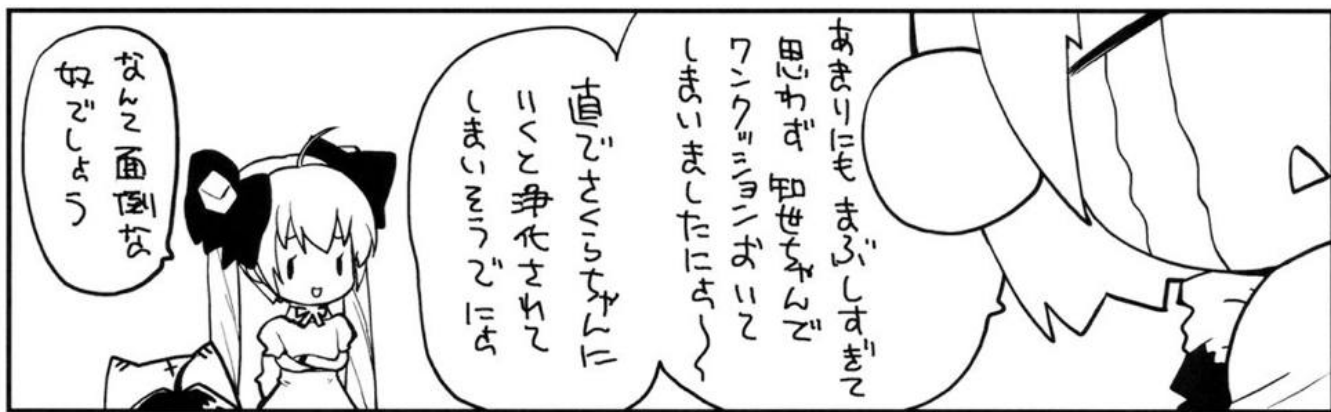 あまりにもまぶしすぎて
思わず知世ちゃんで
ワンクッションおいて
しまいましたにょ～
直でさくらちゃんに
いくと浄化されて
しまいそうでにょ
なんて面倒な
奴でしょう